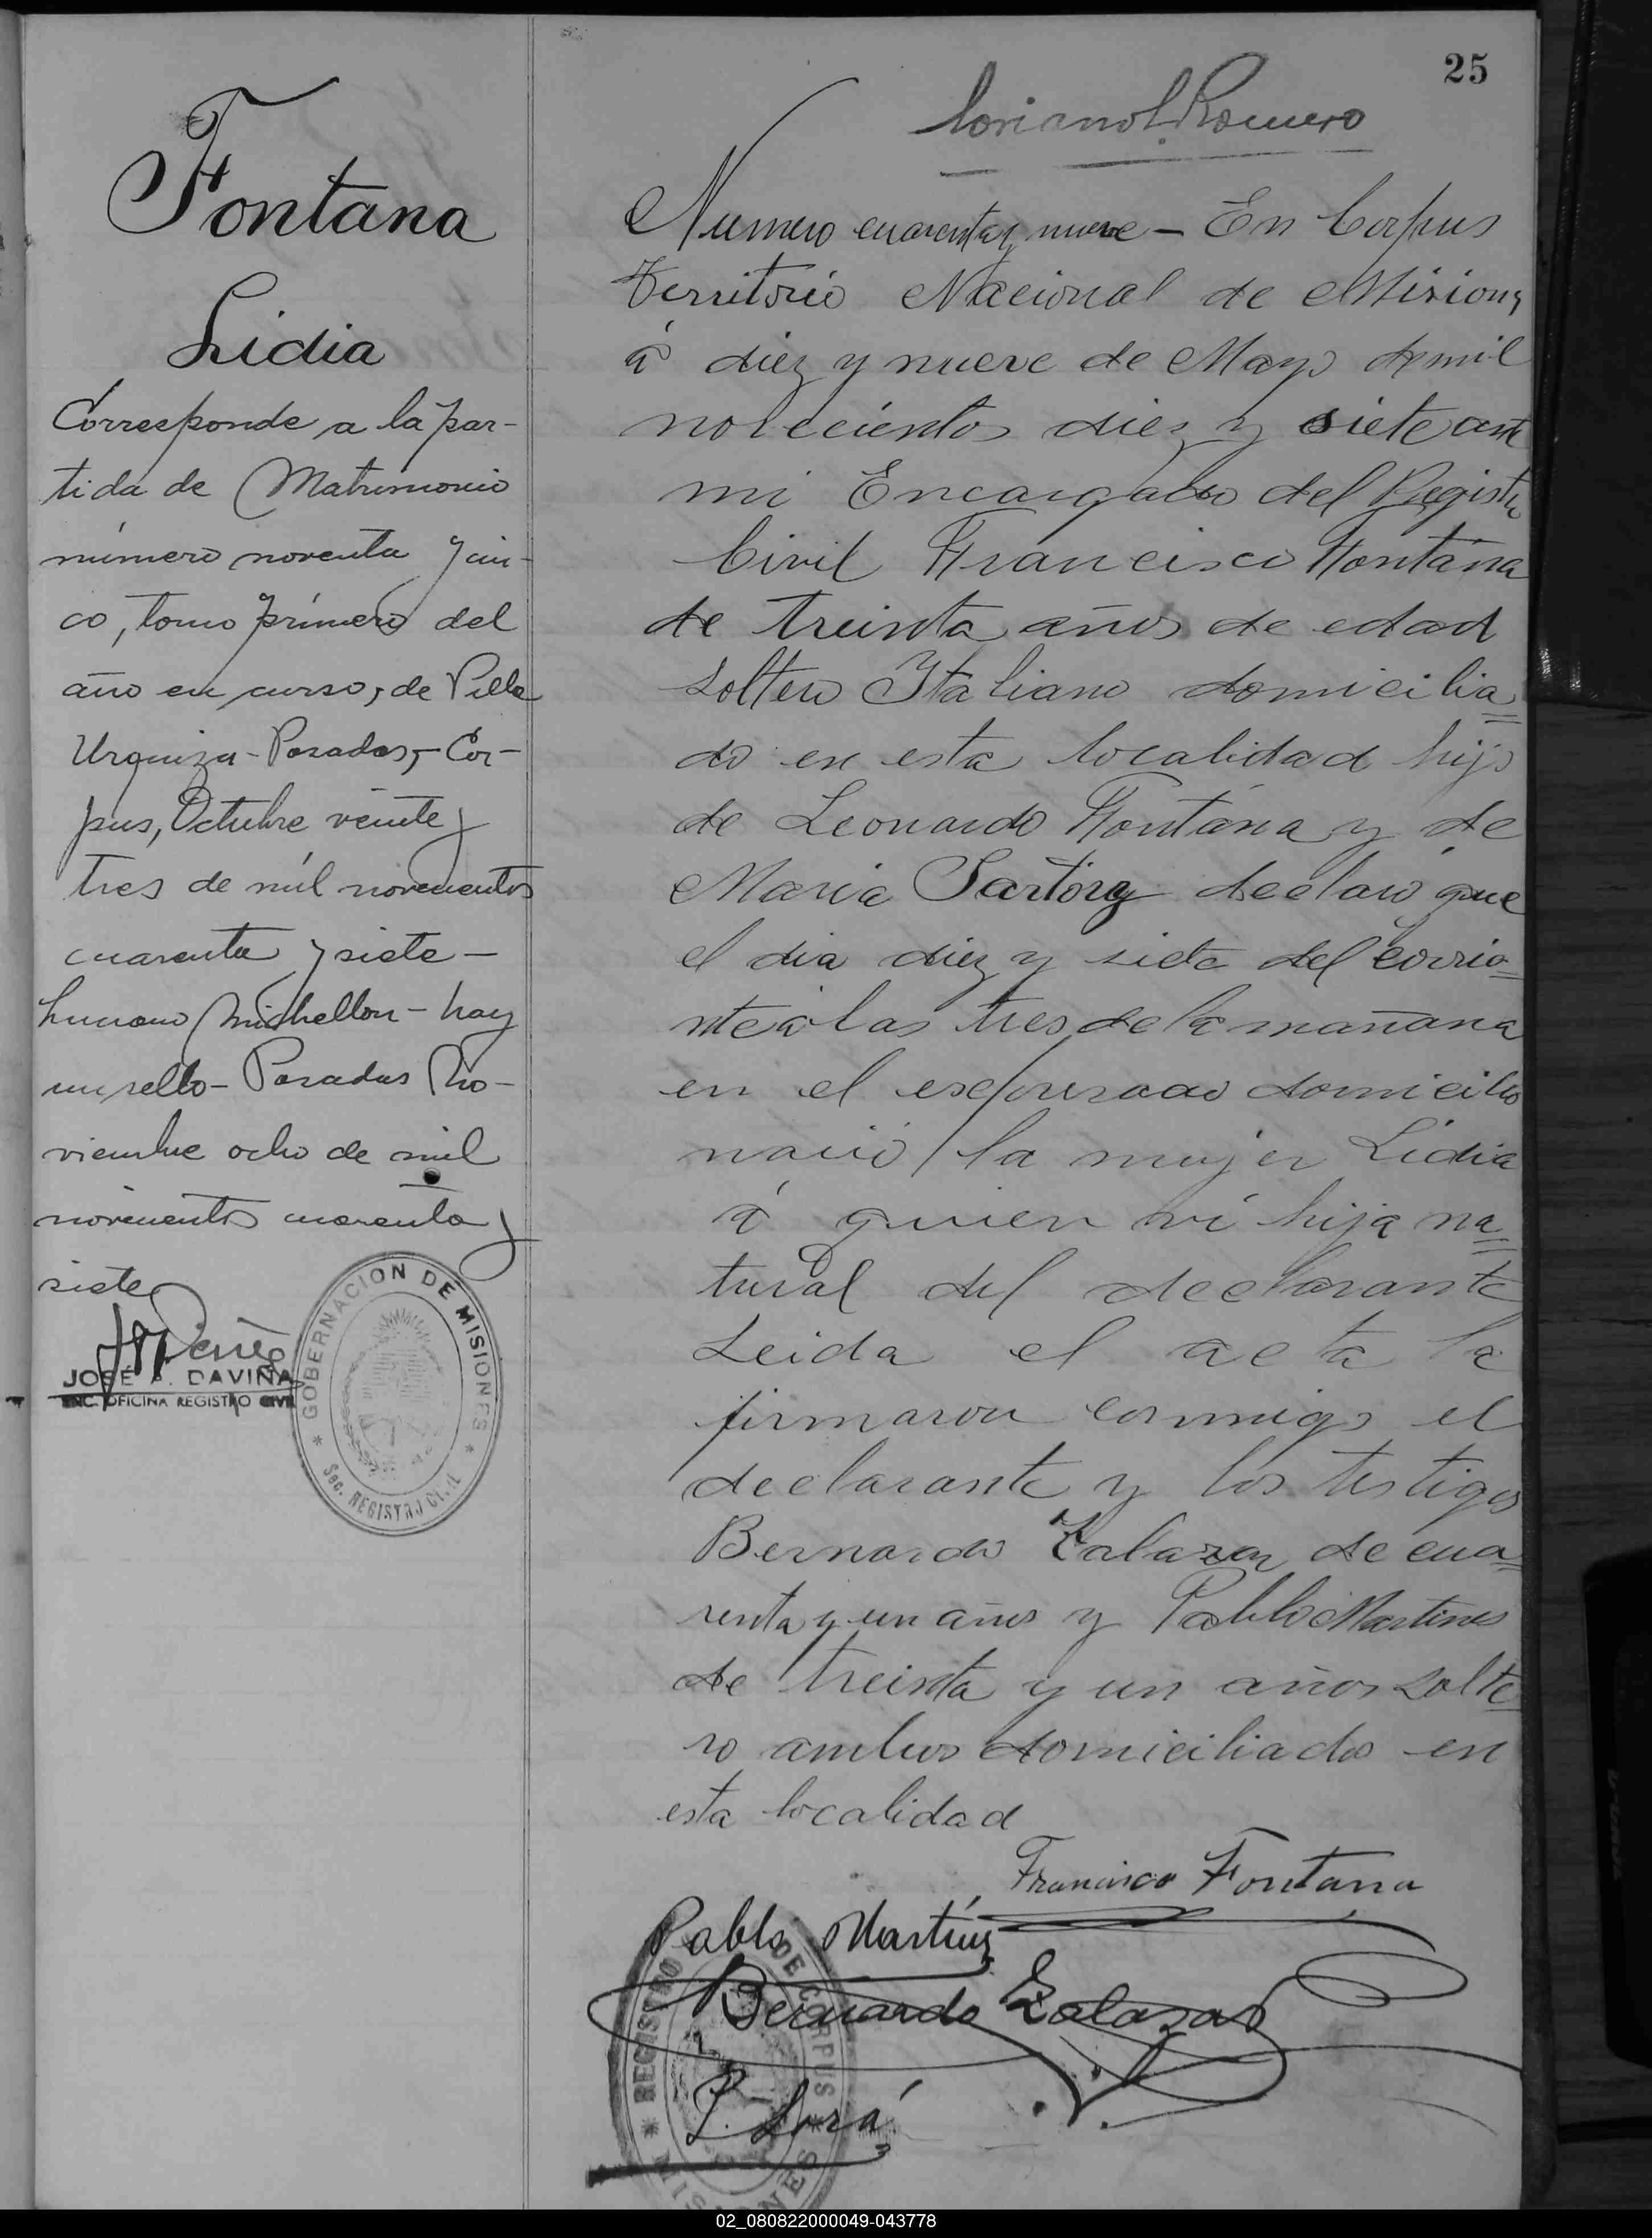 25
Fontana
Lidia
Corresponde a la par-
tida de Matrimonio
número noventa y cin-
co, tomo primero del
año en curso, de Villa
Urquiza - Posadas, - Cor-
pus, Octubre veinte y
tres de mil novecientos
cuarenta y siete -
Luciano Michellon - hay
un sello - Posadas No-
viembre ocho de mil
novecientos cuarenta y
siete
JOSÉ A. DAVIÑA
ENC. OFICINA REGISTRO CIVIL
GOBERNACION DE MISIONES
Sec. REGISTRO CIVIL
Romero
Numero cuarenta y nueve - En Corpus
Territorio Nacional de Misiones
á diez y nueve de Mayo de mil
novecientos diez y siete ante
mi Encargado del Registro
Civil Francisco Fontana
de treinta años de edad
soltero Italiano domicilia=
do en esta localidad hijo
de Leonardo Fontana y de
Maria Sartory declaró que
el dia diez y siete del corrie=
nte á las tres de la mañana
en el expresado domicilio
nació la mujer Lidia
á quien vi hija na=
tural del declarante
Leida el acta la
firmaron conmigo el
declarante y los testigos
Bernardo Zalazar de cua=
renta y un años y Pablo Martines
de treinta y un años solte=
ro ambos domiciliados en
esta localidad
Francisco Fontana
Pablo Martínez
Bernardo Zalazar
REGISTRO DE CORPUS
MISIONES
02_080822000049-043778